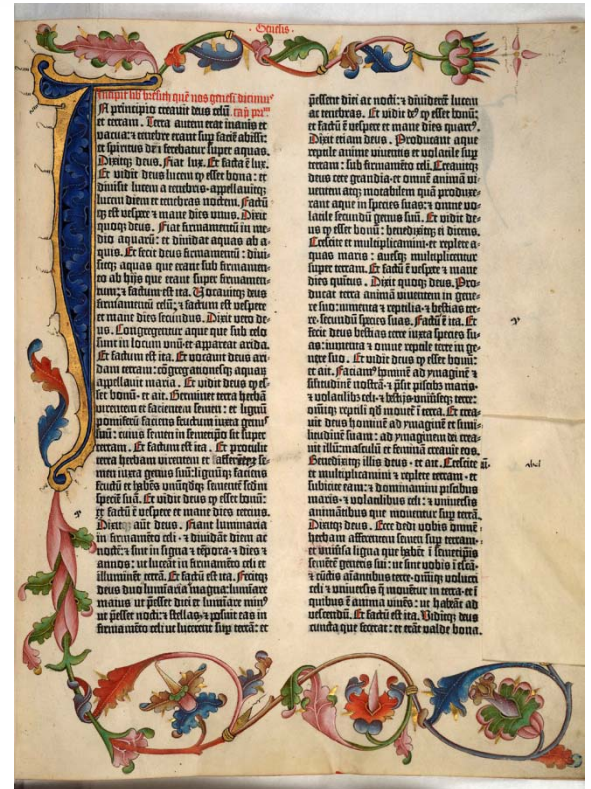 Genesis
Incipit liber bresith quē nos genesim dicimus
In principio creauit deus celū ca. pmm
et terram. Terra autem erat inanis et
vacua: et tenebre erant sup faciē abissi:
et spiritus dn̄i ferebatur super aquas.
Dixitq; deus. Fiat lux. Et facta ē lux.
Et vidit deus lucem cp esset bona: et
diuisit lucem a tenebris · appellauitq;
lucem diem et tenebras noctem. Factū
q; est vespere et mane dies vnus. Dixit
quoq; deus. Fiat firmamentū in me-
dio aquarū: et diuidat aquas ab a-
quis. Et fecit deus firmamentū: diui-
sitq; aquas que erant sub firmamen-
to ab hijs que erant super firmamen-
tum: et factum est ita. Vocauitq; deus
firmamentū celū: et factum est vespere
et mane dies secundus. Dixit vero de-
us. Congregentur aque que sub celo
sunt in locum vnū et appareat arida.
Et factum est ita. Et vocauit deus ari-
dam terram: cōgregationesq; aquaȝ
appellauit maria. Et vidit deus cp es-
set bonū · et ait. Germinet terra herbā
virentem et facientem semen: et lignū
pomiferū faciens fructum iuxta genus
suū: cuius semen in semetipso sit super
terram. Et factum est ita. Et protulit
terra herbam virentem et facientē se-
men iuxta genus suū: lignūq; faciens
fructū et habēs vnūqdq; sementē scdm
speciē suā. Et vidit deus cp esset bonū:
et factū est vespere et mane dies tercius.
Dixitq; autē deus. Fiant luminaria
in firmamēto celi · et diuidāt diem ac
noctē: et sint in signa et tēpora · et dies et
annos: ut luceāt in firmamēto celi et
illuminēt terrā. Et factū est ita. Fecitq;
deus duo luminaria magna: luminare
maius ut pesset diei et luminare min9
ut pesset nocti: et stellas · et posuit eas in
firmamēto celi ut lucerent sup terrā: et
pessent diei ac nocti: et diuiderēt lucem
ac tenebras. Et vidit de9 cp esset bonū:
et factū ē vespere et mane dies quart9.
Dixit etiam deus. Producant aque
reptile anime viuentis et volatile sup
terram: sub firmamēto celi. Creauitq;
deus cete grandia · et omnē animā vi-
uentem atq; motabilem quā produxe-
rant aque in species suas: et omne vo-
latile secundū genus suū. Et vidit de-
us cp esset bonū: benedixitq; ei dicens.
Crescite et multiplicamini · et replete a-
quas maris: auesq; multiplicentur
super terram. Et factū ē vespere et mane
dies quintus. Dixit quoq; deus. Pro-
ducat terra animā viuentem in gene-
re suo: iumenta et reptilia · et bestias ter-
re secundū species suas. Factū ē ita. Et
fecit deus bestias terre iuxta species su-
as: iumenta et omne reptile terre in ge-
nere suo. Et vidit deus cp esset bonū:
et ait. Faciam9 hominē ad ymaginē et
similitudinē nostrā · et psit piscib9 maris ·
et volatilib9 celi · et bestijs vniuseq; terre:
omniq; reptili qd mouet ī terra. Et crea-
uit deus hominē ad ymaginē et simi-
litudinē suam: ad ymaginem dei crea-
uit illū: masculū et feminā creauit eos.
Benedixitq; illis deus · et ait. Crescite
et multiplicamini et replete terram · et
subicite eam: et dominamini piscibus
maris · et volatilibus celi: et vniuersis
animātibus que mouentur sup terrā.
Dixitq; deus. Ecce dedi vobis omnē
herbam afferentem semen sup terram ·
et vniūsa ligna que habēt ī semetipsis
semētē generis sui: ut sint vobis ī escā ·
et cūctis aīantibus terre · omīq; volucri
celi et vniuersis q mouētur in terra · et ī
quibus ē anima viuēs: ut habeāt ad
vescendū. Et factū est ita. Viditq; deus
cuncta que fecerat: et erāt valde bona.